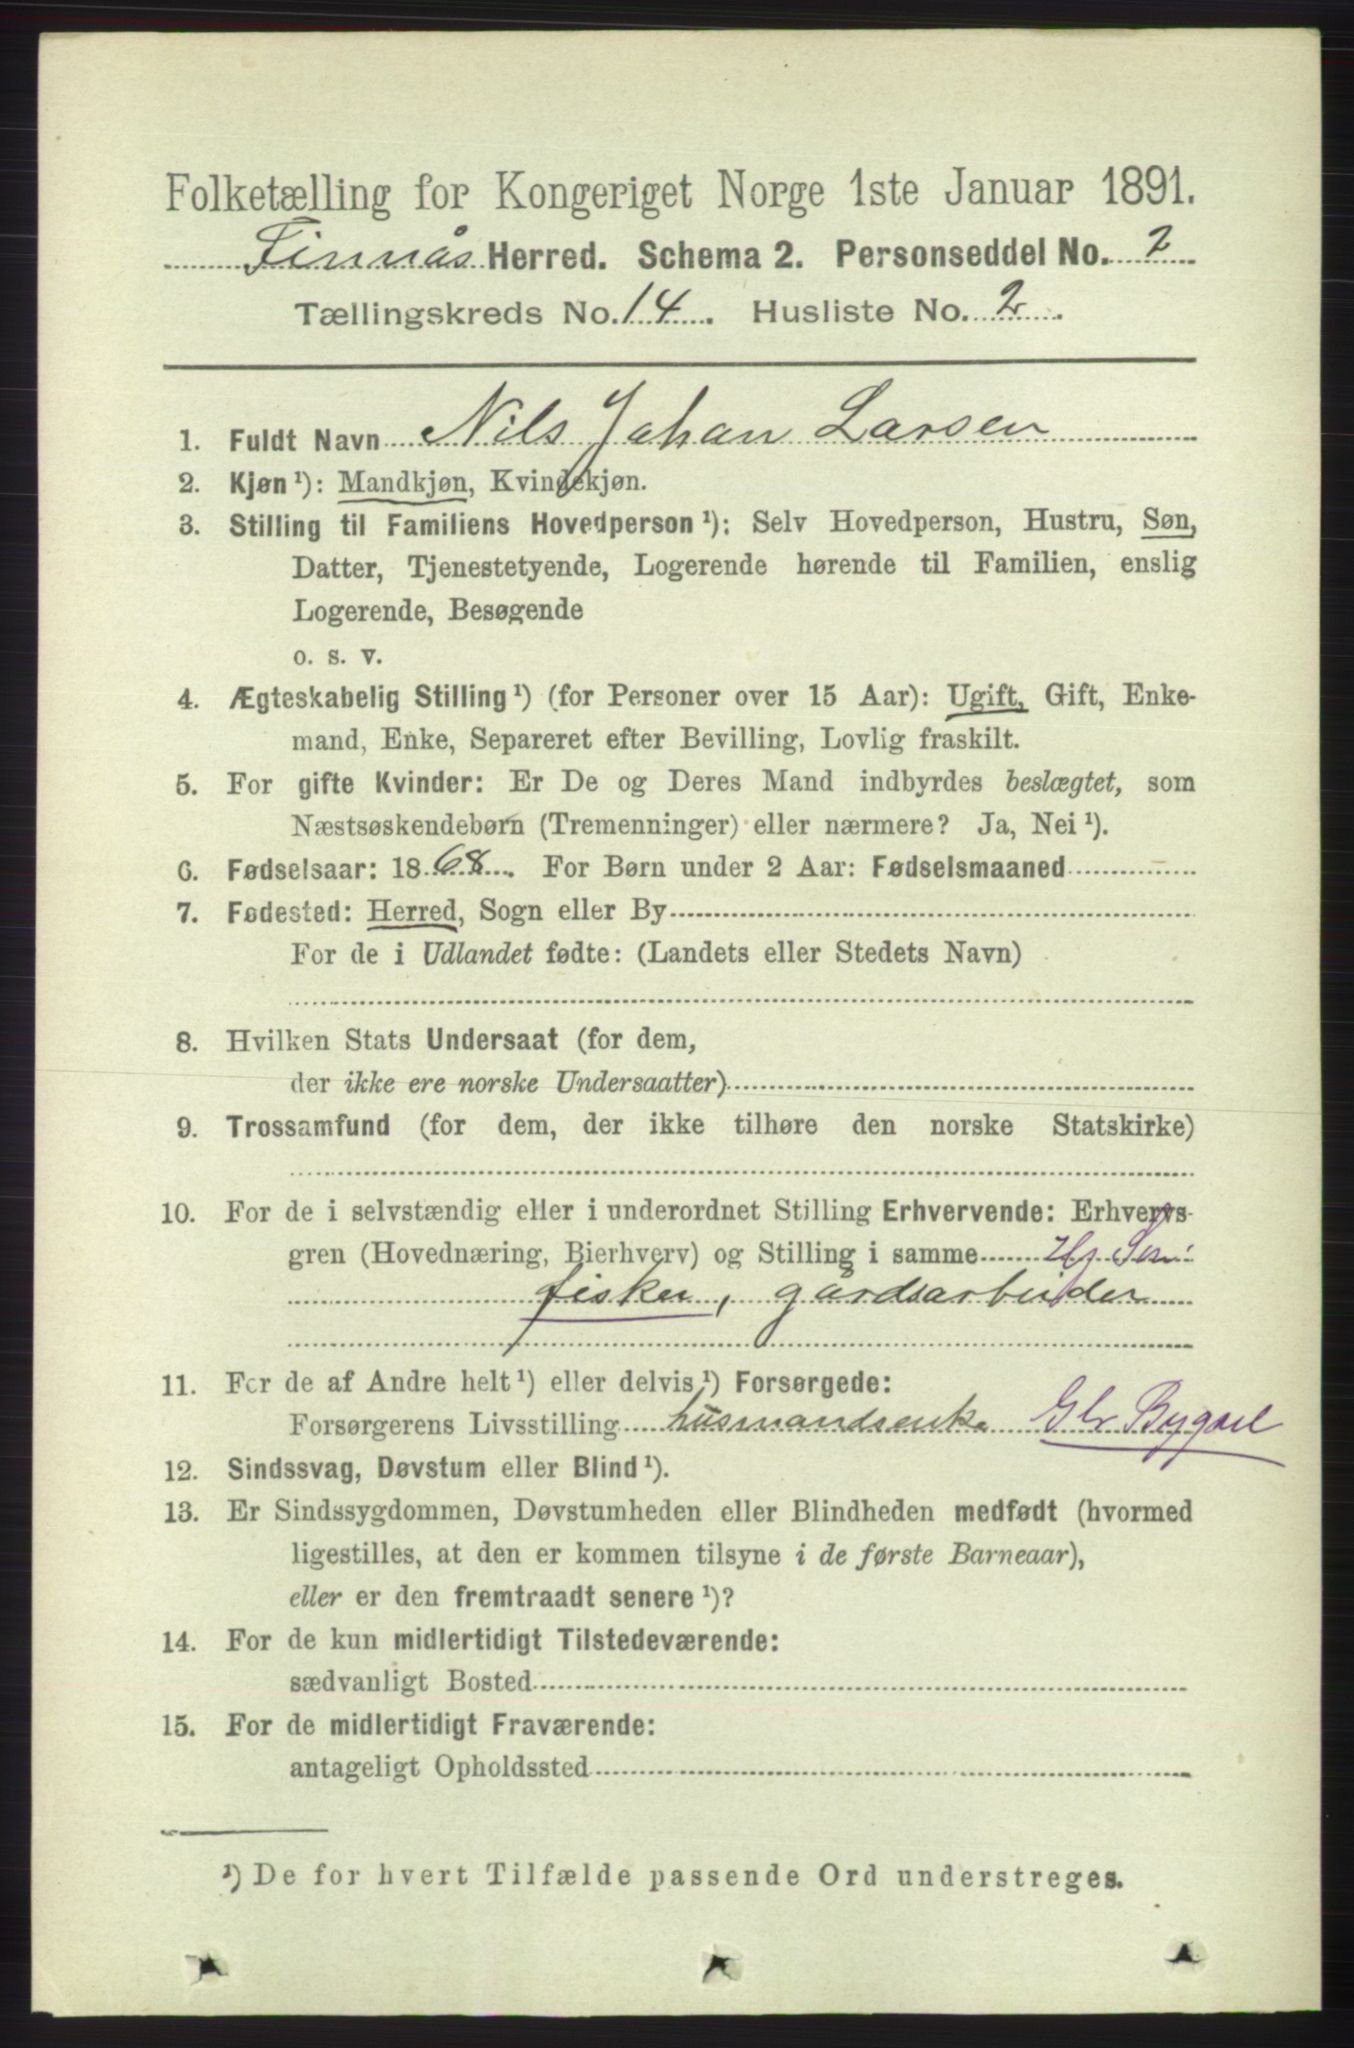 Folketælling for Kongeriget Norge 1ste Januar 1891.
Finnås Herred. Schema 2. Personseddel No. 2
Tællingskreds No. 14. Husliste No. 2.
1. Fuldt Navn Nils Johan Larsen
2. Kjøn ¹): Mandkjøn, Kvindekjøn.
3. Stilling til Familiens Hovedperson ¹): Selv Hovedperson, Hustru, Søn,
Datter, Tjenestetyende, Logerende hørende til Familien, enslig
Logerende, Besøgende
o. s. v.
4. Ægteskabelig Stilling ¹) (for Personer over 15 Aar): Ugift, Gift, Enke-
mand, Enke, Separeret efter Bevilling, Lovlig fraskilt.
5. For gifte Kvinder: Er De og Deres Mand indbyrdes beslægtet, som
Næstsøskendebørn (Tremenninger) eller nærmere? Ja, Nei ¹).
6. Fødselsaar: 1868. For Børn under 2 Aar: Fødselsmaaned
7. Fødested: Herred, Sogn eller By
For de i Udlandet fødte: (Landets eller Stedets Navn)
8. Hvilken Stats Undersaat (for dem,
der ikke ere norske Undersaatter)
9. Trossamfund (for dem, der ikke tilhøre den norske Statskirke)
10. For de i selvstændig eller i underordnet Stilling Erhvervende: Erhvervs-
gren (Hovednæring, Bierhverv) og Stilling i samme
fisker, gårdsarbeider
11. For de af Andre helt ¹) eller delvis ¹) Forsørgede:
Forsørgerens Livsstilling husmandsenke
12. Sindssvag, Døvstum eller Blind ¹).
13. Er Sindssygdommen, Døvstumheden eller Blindheden medfødt (hvormed
ligestilles, at den er kommen tilsyne i de første Barneaar),
eller er den fremtraadt senere ¹)?
14. For de kun midlertidigt Tilstedeværende:
sædvanligt Bosted
15. For de midlertidigt Fraværende:
antageligt Opholdssted
¹) De for hvert Tilfælde passende Ord understreges.